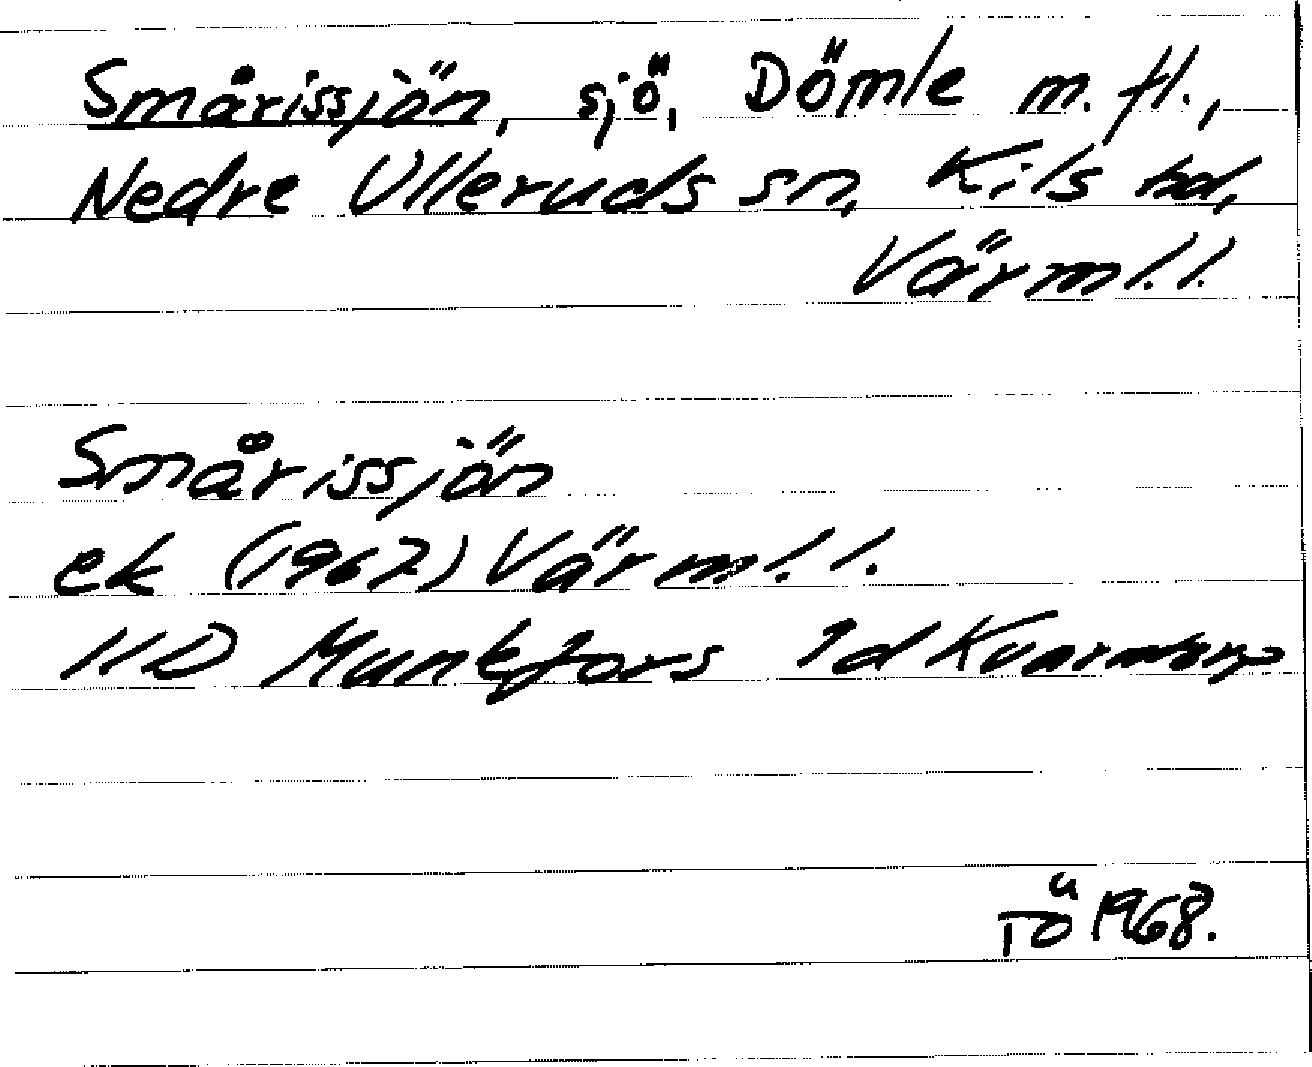 Smårissjön, sjö, Dömle m.fl.,
Nedre Ulleruds sn, Kils hd,
Värml.l.
Smårissjön
ek (1967) Värml.l.
11D Munkfors 1d Kvarntorp
TÖ 1968.